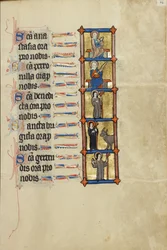 Sca ana
stasia ora
pro nobis
Sca petro
nilla ora p
nobis
Sca benedi
cta ora pro
nobis
ancta bri
gida ora p
nobis
Sca gertru
dis ora pro
nobis